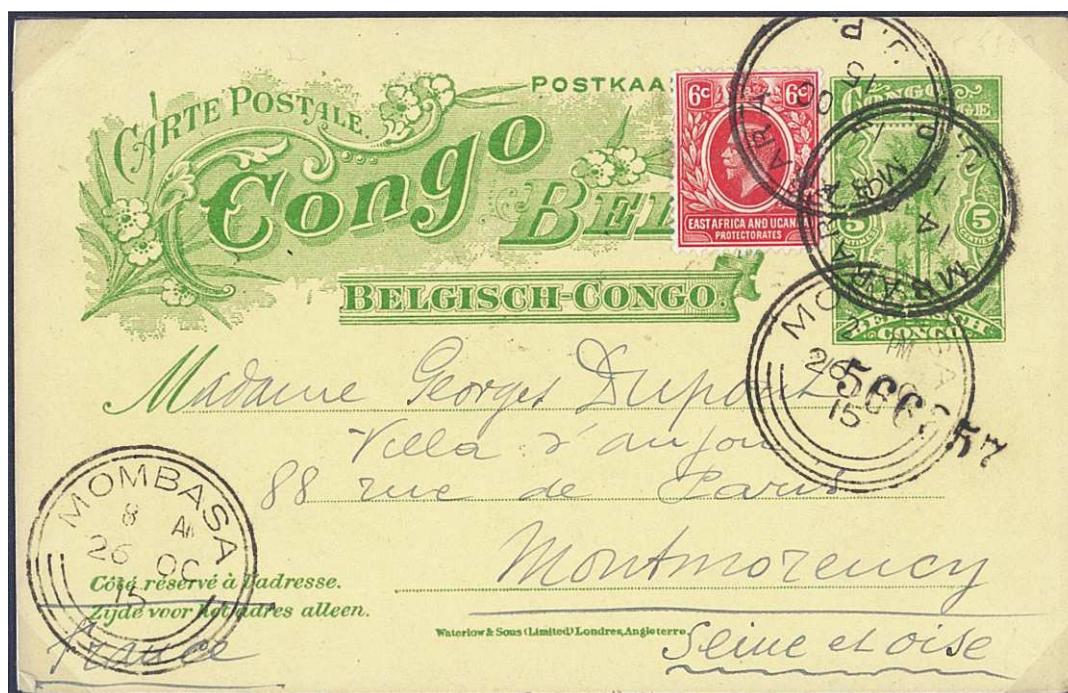 CARTE POSTALE.
POSTKAA
Congo
BEL
BELGISCH-CONGO.
6c 6c
EAST AFRICA AND UGAN
PROTECTORATES
CONGO
GE
5 5
CENTIEM
CONGO
MBARARA
MBARARA
MOMBASA
2 PM
26 OC
15
566657
Madame Georges Dupont
Villa d'anjou
88 rue de Paris
Montmorency
Seine et oise
France
MOMBASA
8 AM
26 OC
15
Côté réservé à l'adresse.
Zijde voor het adres alleen.
Waterlow & Sons (Limited) Londres, Angleterre